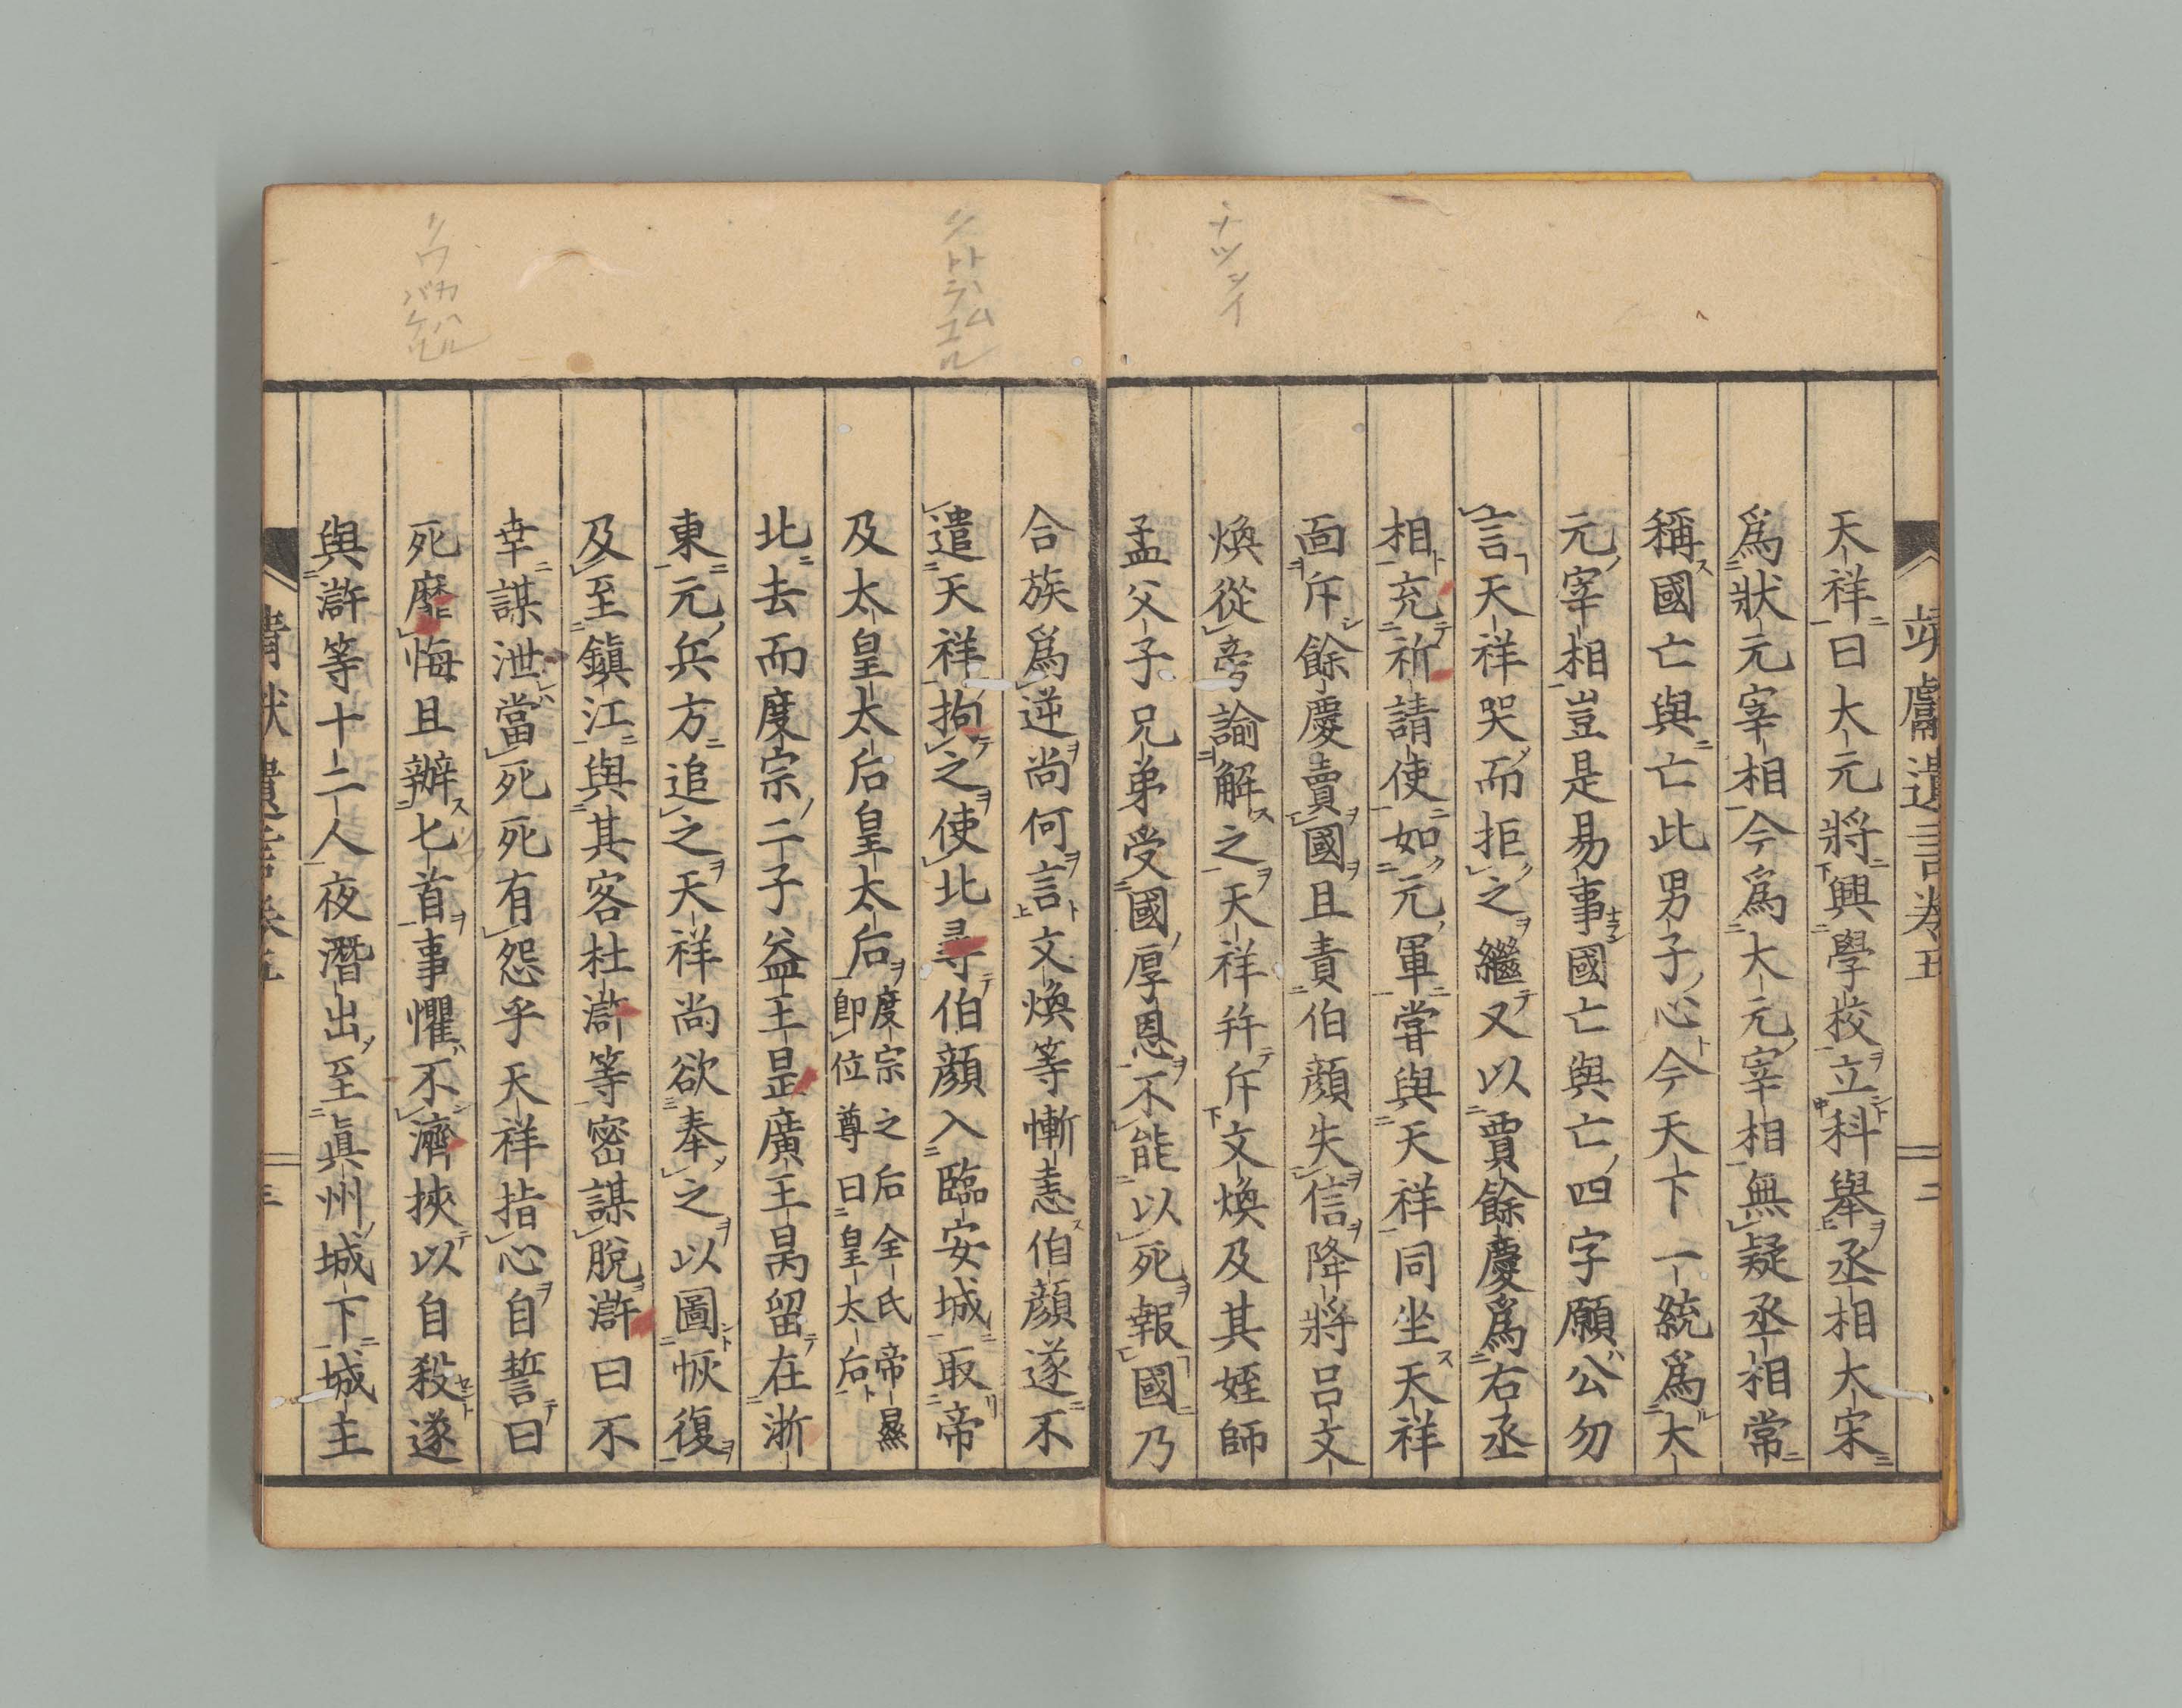 靖獻遺言卷五
二
天祥曰大元將興學校立科舉丞相大宋
爲狀元宰相今爲大元宰相無疑丞相常
稱國亡與亡此男子心今天下一統爲大
元宰相豈是易事國亡與亡四字願公勿
言天祥哭而拒之繼又以賈餘慶爲右丞
相充祈請使如元軍嘗與天祥同坐天祥
面斥餘慶賣國且責伯顔失信降將呂文
煥從旁諭解之天祥幷斥文煥及其姪師
孟父子兄弟受國厚恩不能以死報國乃
ナツシイ
合族爲逆尚何言文煥等慚恚伯顔遂不
遣天祥拘之使北尋伯顔入臨安城取帝
及太皇太后皇太后度宗之后全氏帝㬎
即位尊曰皇太后
北去而度宗二子益王昰廣王昺留在浙
東元兵方追之天祥尚欲奉之以圖恢復
及至鎮江與其客杜滸等密謀脫滸曰不
幸謀泄當死死有怨乎天祥指心自誓曰
死靡悔且辦匕首事懼不濟挾以自殺遂
與滸等十二人夜潛出至眞州城下城主
靖獻遺言卷五
三